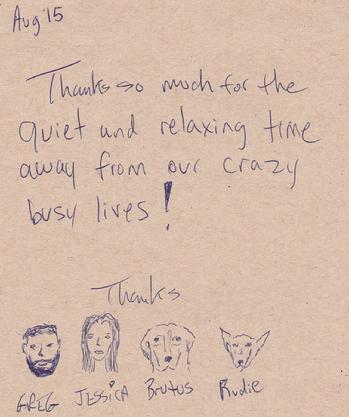 Aug '15
Thanks so much for the
quiet and relaxing time
away from our crazy
busy lives!
Thanks
GREG JESSiCA Brutus Rudie